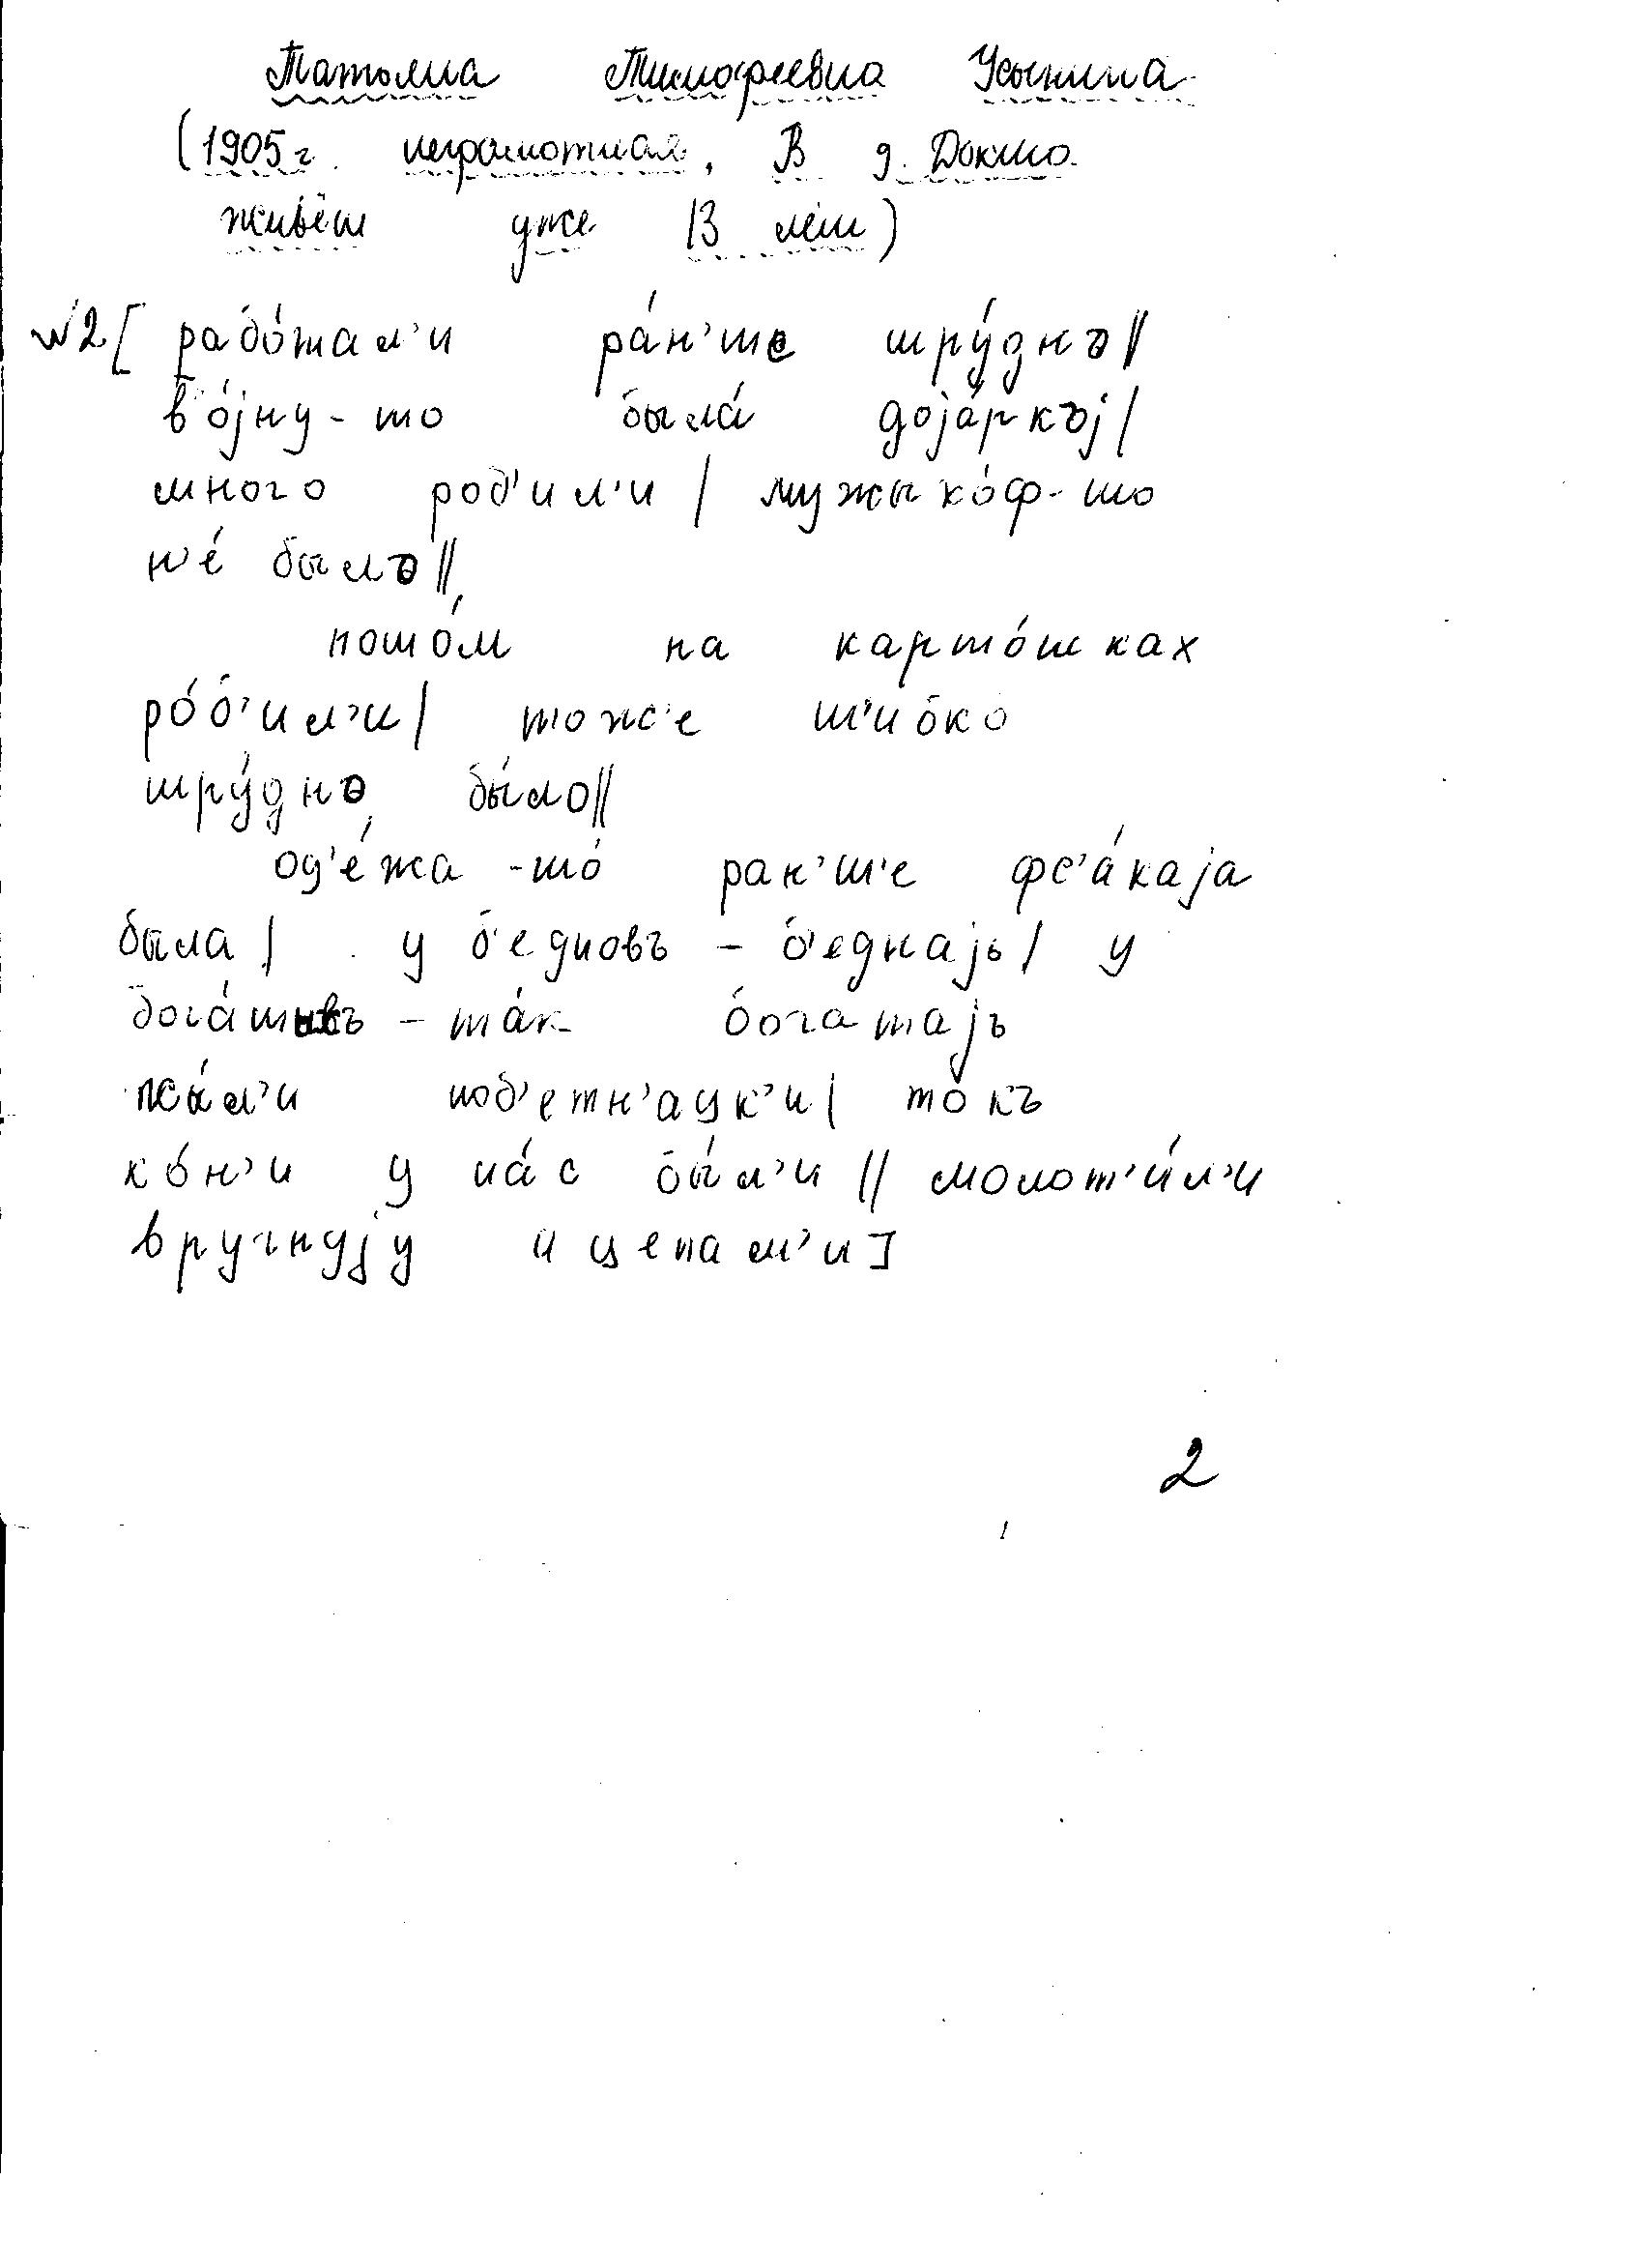 Татьяна Тимофеевна Усынина
(1905г. неграмотная. В д. Докша
живёт уже 13 лет)
№2[ рабо́тал'и ра́н'ше тру́днъ||
во́jну-то была́ доjа́ркъj|
много роб'ил'и | мужыко́ф-то
н'е́ былъ||
пото́м на карто́шках
ро́б'ил'и| тож'е ш'ибко
тру́дно бы́ло||
од'е́жа-то́ ран'ш'е фс'а́каjа
была| у б'едновъ - б'еднаjь| у
бога́тывъ - та́к богатаjъ
жа́л'и то́къ
ко́н'и у на́с бы́л'и || молот'и́л'и
вручнуjу и цепам'и]
2